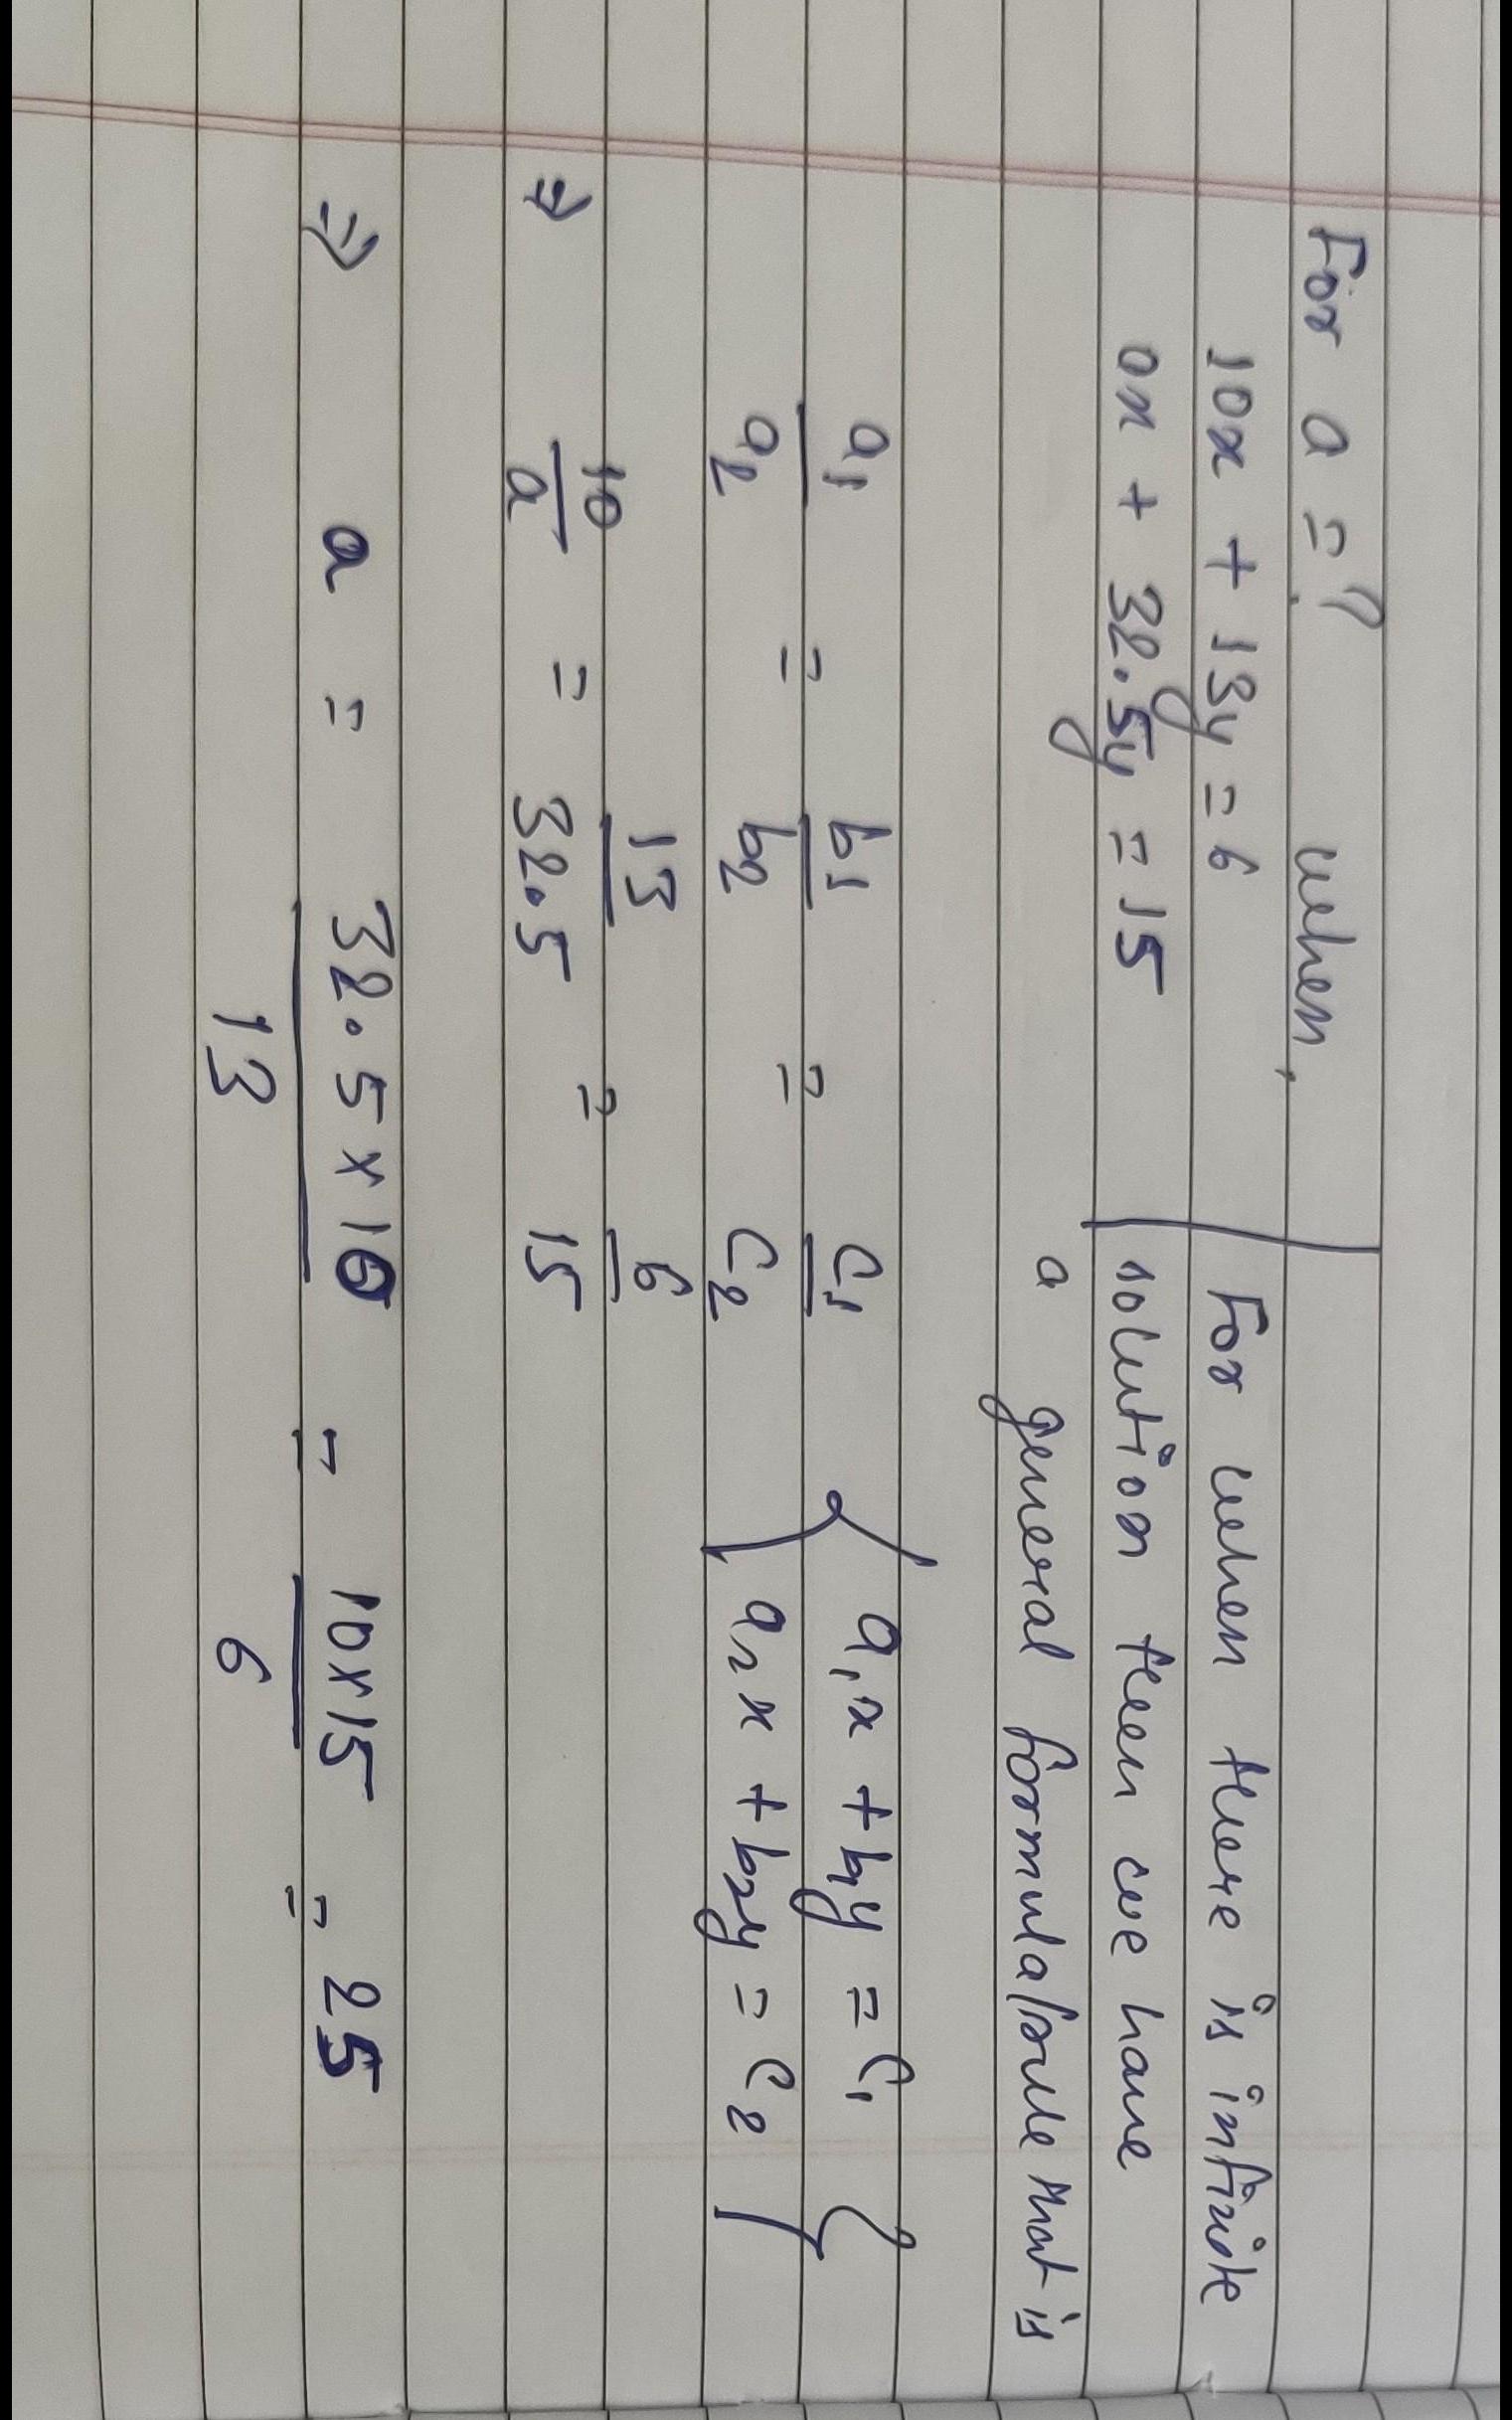 For a = ? when,
10x + 13y = 6
ax + 32.5y = 15
For when there is infinite
solution then we have
a general formula/rule that is
a₁/a₂ = b₁/b₂ = c₁/c₂ { a₁x + b₁y = c₁
a₂x + b₂y = c₂ }
⇒ 10/a = 13/32.5 = 6/15
⇒ a = 32.5 x 10/13 = 10x15/6 = 25